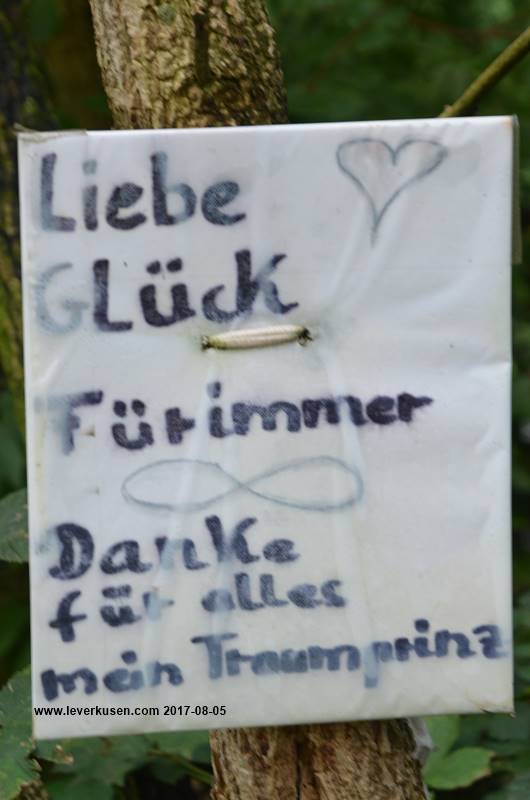 Liebe
GLück
Für immer
Danke
für alles
mein Traumprinz
www.leverkusen.com 2017-08-05